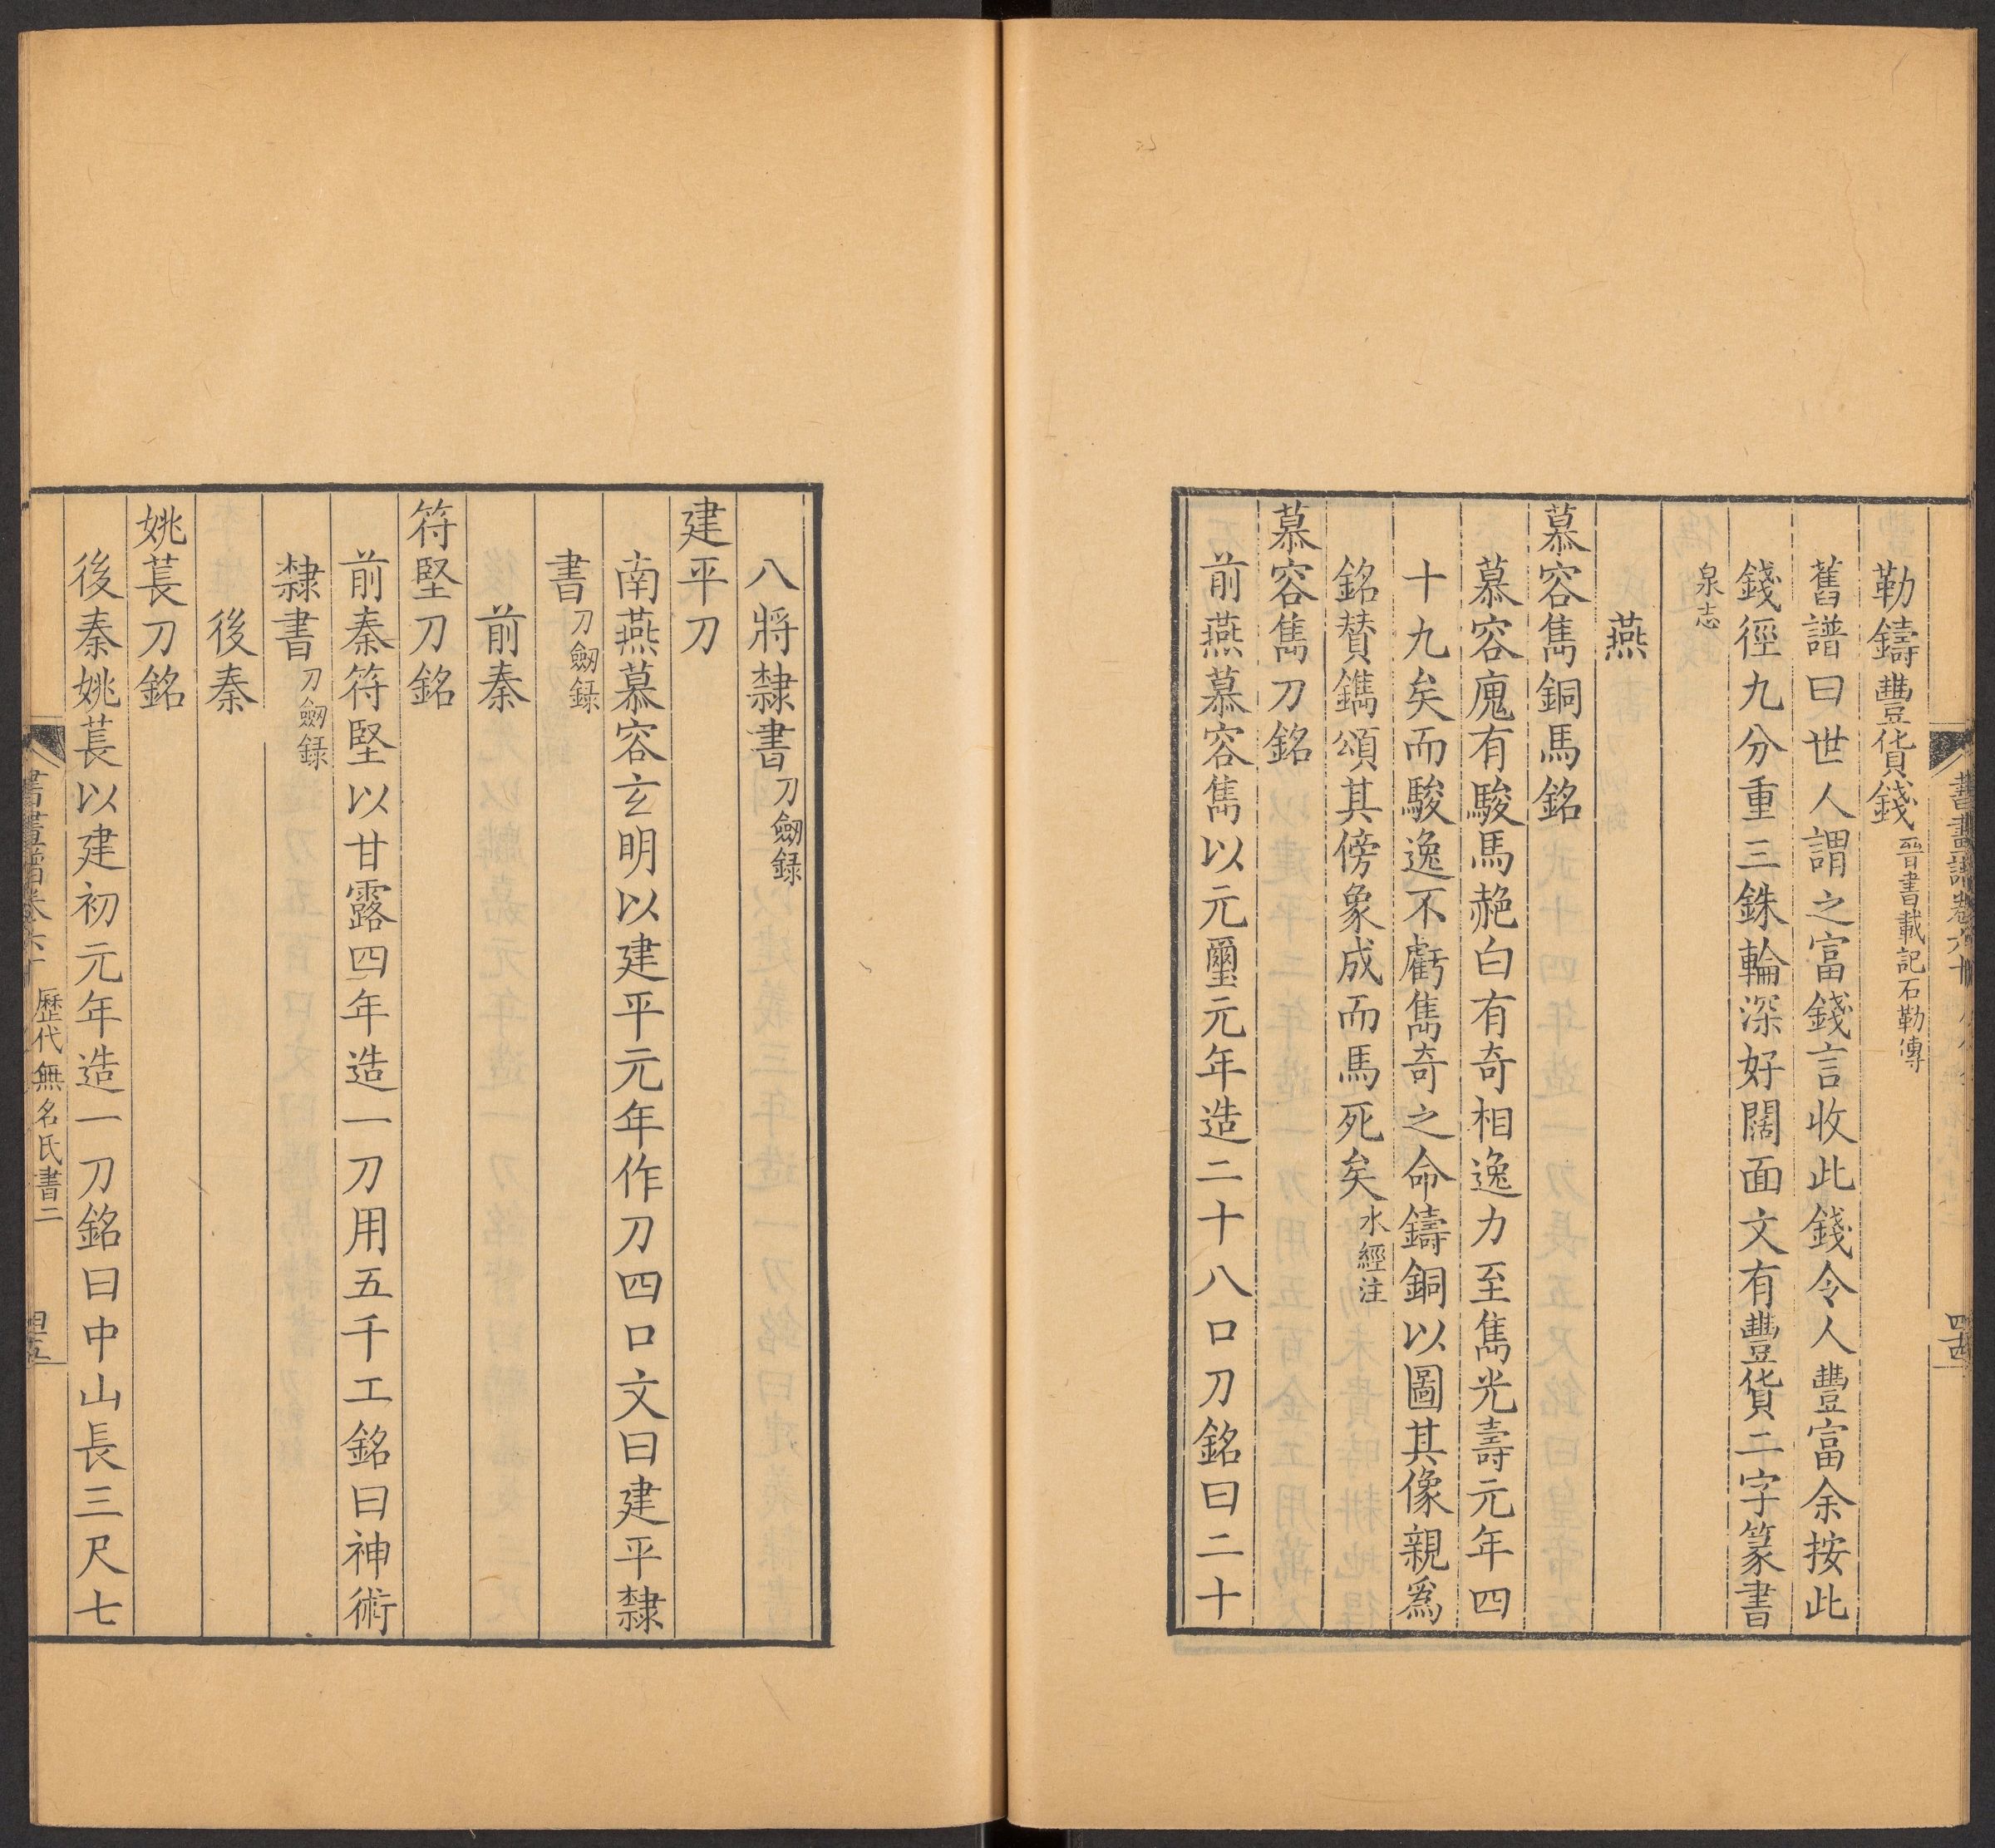 勒鑄豐貨錢 晉書載記石勒傳
舊譜曰世人謂之富錢言收此錢令人豐富余按此
錢徑九分重三銖輪深好闊面文有豐貨二字篆書
泉志
燕
慕容雋銅馬銘
慕容廆有駿馬赩白有奇相逸力至雋光壽元年四
十九矣而駿逸不虧雋奇之命鑄銅以圖其像親爲
銘贊鐫頌其傍象成而馬死矣 水經注
慕容雋刀銘
前燕慕容雋以元璽元年造二十八口刀銘曰二十
八將隸書 刀劒録
建平刀
南燕慕容玄明以建平元年作刀四口文曰建平隸
書 刀劒録
前秦
符堅刀銘
前秦符堅以甘露四年造一刀用五千工銘曰神術
隸書 刀劒録
後秦
姚萇刀銘
後秦姚萇以建初元年造一刀銘曰中山長三尺七
書畫譜卷六十 歷代無名氏書二